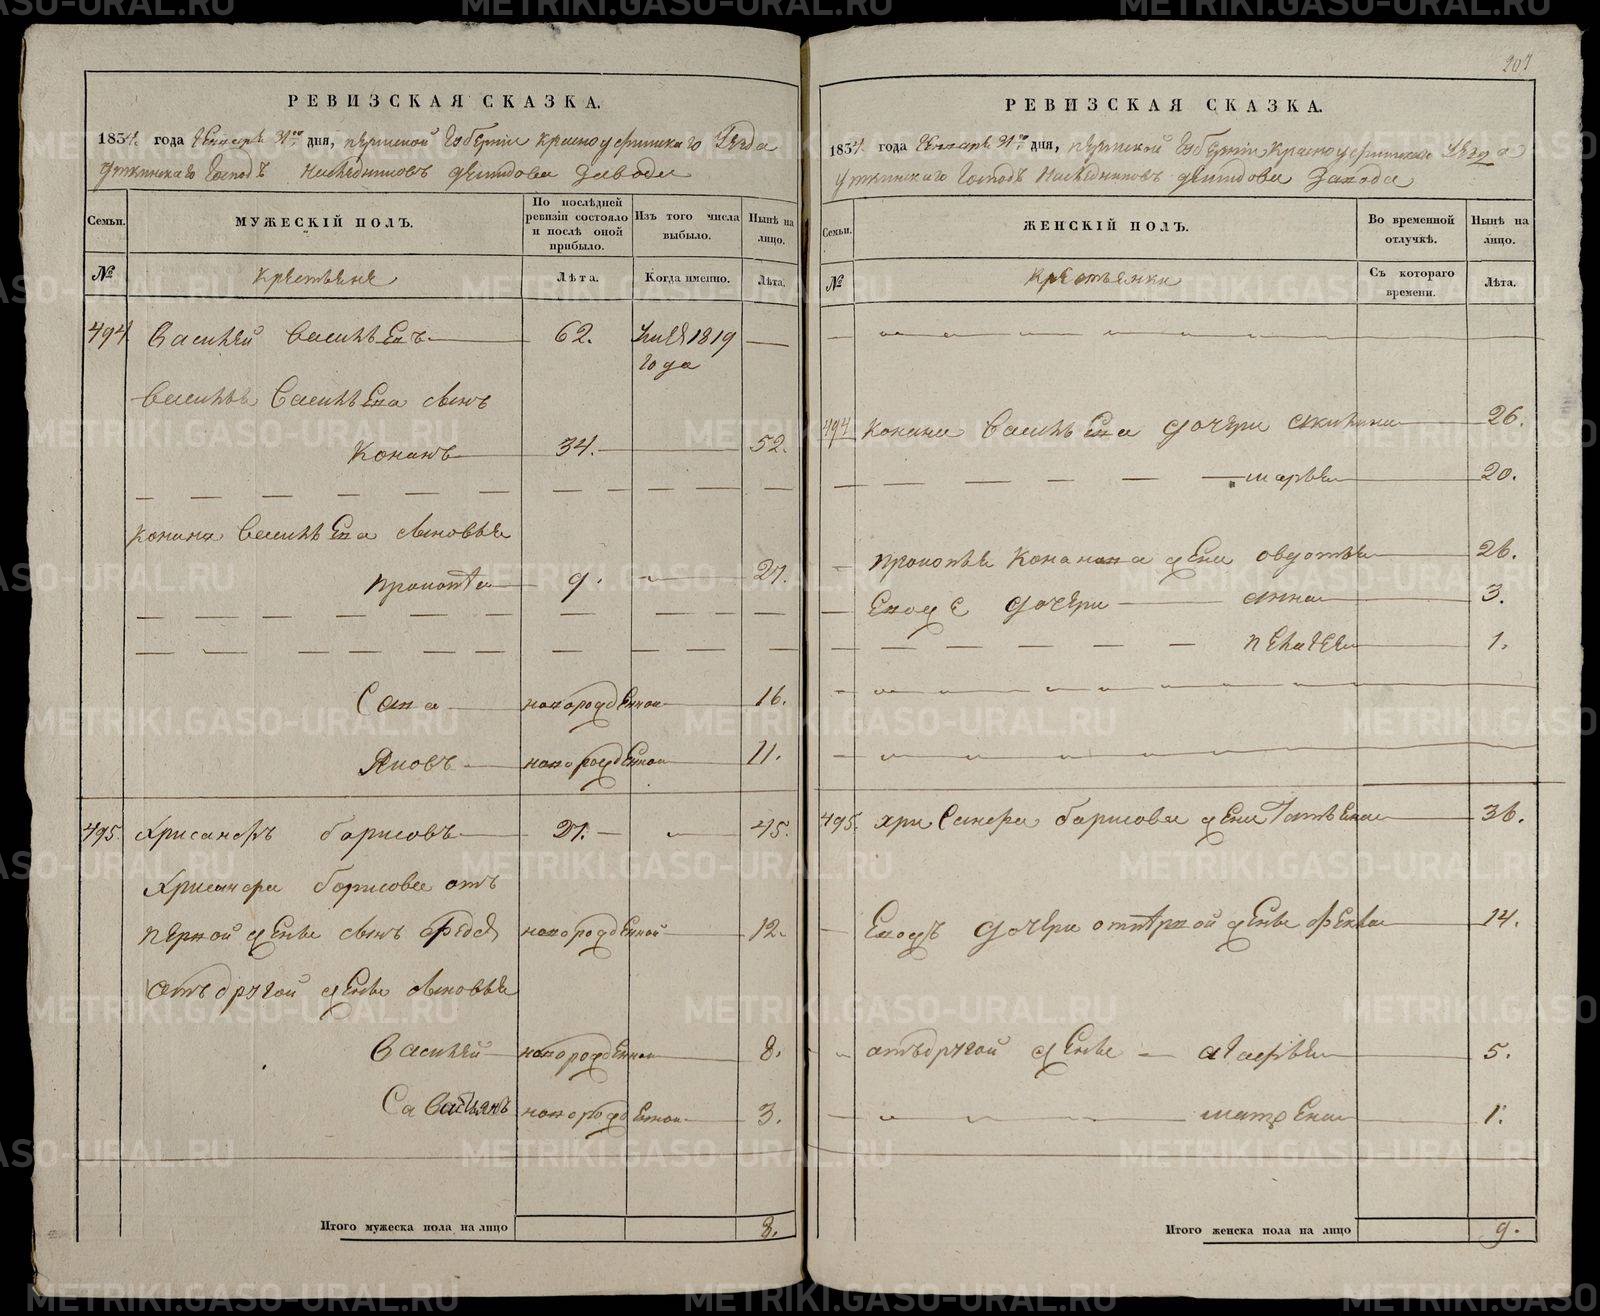 РЕВИЗСКАЯ СКАЗКА.
1834. года Генваря 31го дня, пермской Губернiи красноуфимскаго Уезда
Уткинскаго Господъ Наследниковъ демидова Завода
Семьи.
МУЖЕСКIЙ ПОЛЪ.
По послѣдней ревизiи состояло и послѣ оной прибыло.
Изъ того числа выбыло.
Нынѣ на лицо.
№
крестьяне
Лѣта.
Когда именно.
Лѣта.
494 Василей Васильевъ 62. 1819 —
года
Василья Васильева сынъ
Конанъ 34. 52.
Конана Васильева сыновья
Прокопей 9. 27.
Сава новорожденной 16.
Яковъ новорожденной 11.
495. Хрисанфъ борисовъ 27. 45.
Хрисанфа борисова отъ
первой жены сынъ новорожденной 12.
отъ другой жены сыновья
Василей новорожденной 8.
новорожденной 3.
Итого мужеска пола на лицо 8.
207
РЕВИЗСКАЯ СКАЗКА.
1834. года Генваря 31го дня, пермской Губернiи красноуфимскаго Уезда
Уткинскаго Господъ Наследниковъ демидова Завода
Семьи.
ЖЕНСКIЙ ПОЛЪ.
Во временной отлучкѣ.
Нынѣ на лицо.
№
крестьянки
Съ котораго времени.
Лѣта.
494 Конана Васильева дочери акилина 26.
марья 20.
Прокопья Конанова жена овдотья 26.
Еводе дочери анна 3.
пелагея 1.
495. хрисанфа борисова жена татьена 36.
Еводъ дочери отпервой жены фекла 14.
отъдругой жены агафья 5.
матрена 1.
Итого женска пола на лицо 9.
METRIKI.GASO-URAL.RU